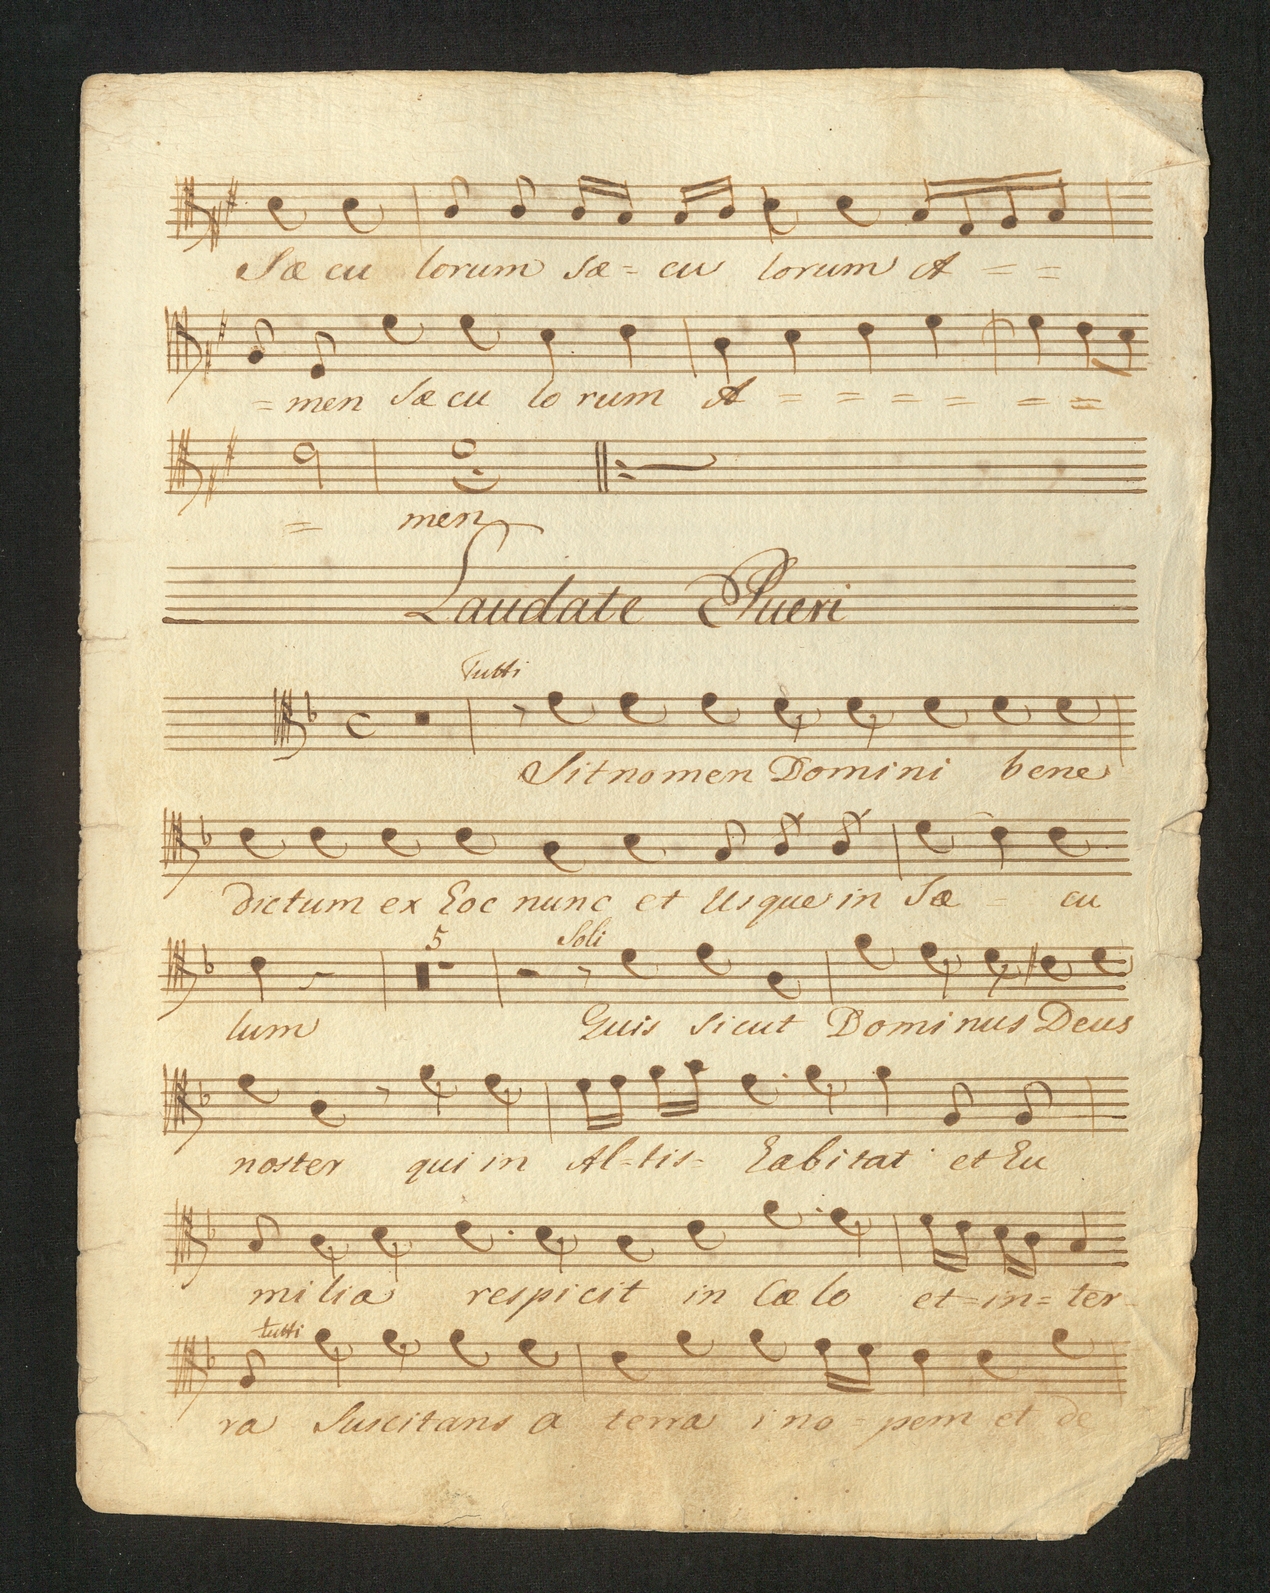 Sæ cu lorum sæ = cu lorum A = =
= men sæ cu lo rum A = = = = = =
= men
Laudate Pueri
Tutti
Sit nomen Domini bene
dictum ex hoc nunc et Usque in sæ = cu
5 Soli
lum Quis sicut Dominus Deus
noster qui in Al-tis- habitat et hu
milia respicit in Cælo et = in = ter
tutti
ra Suscitans a terra i no = pem et de